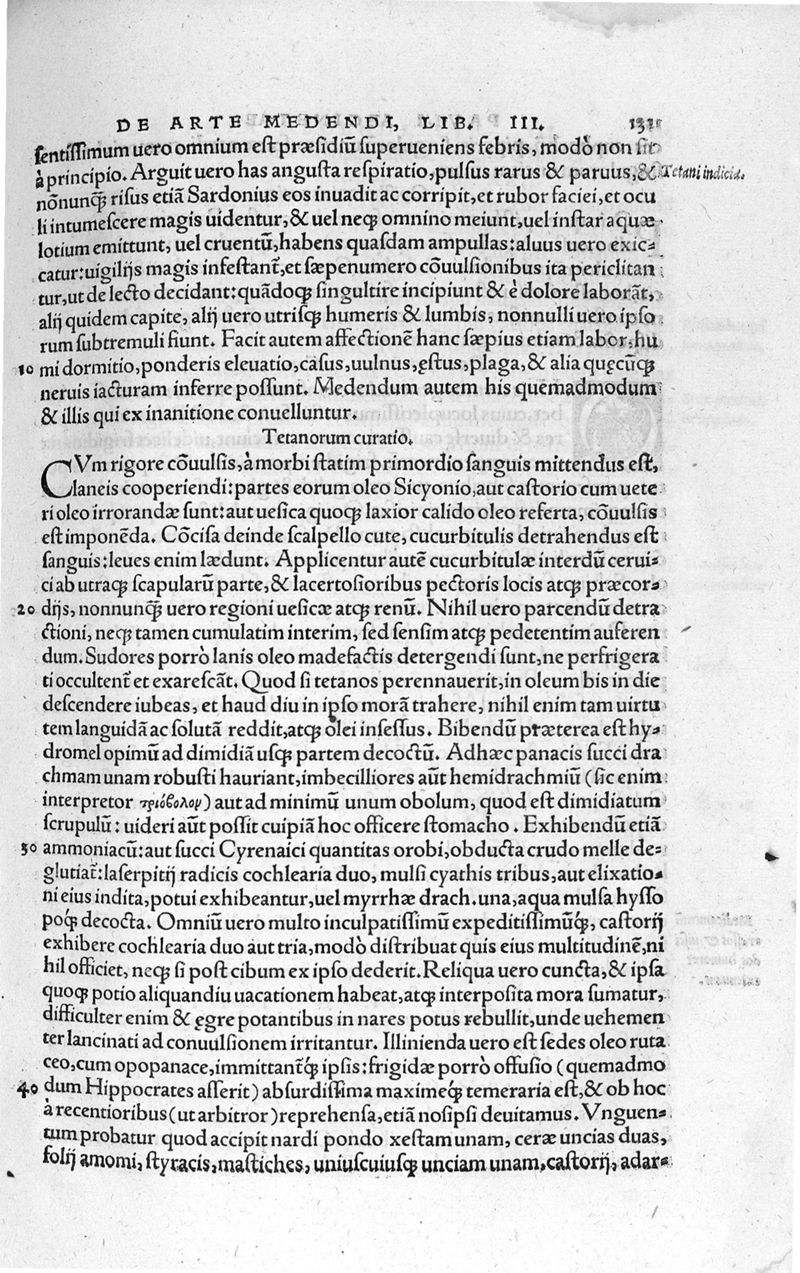 DE ARTE MEDENDI, LIB. III. 131
sentissimum uero omnium est præsidiũ superueniens febris, modò non sit
à principio. Arguit uero has angusta respiratio, pulsus rarus & paruus, & Tetani indicia.
nõnunq̃ risus etiã Sardonius eos inuadit ac corripit, et rubor faciei, et ocu
li intumescere magis uidentur, & uel neq; omnino meiunt, uel instar aquæ
lotium emittunt, uel cruentũ, habens quasdam ampullas: aluus uero exic-
catur: uigilijs magis infestant̃, et sæpenumero cõuulsionibus ita periclitan
tur, ut de lecto decidant: quãdoq; singultire incipiunt & è dolore laborãt,
alij quidem capite, alij uero utrisq; humeris & lumbis, nonnulli uero ipso
rum subtremuli fiunt. Facit autem affectionẽ hanc sæpius etiam labor, hu
10 mi dormitio, ponderis eleuatio, casus, uulnus, ęstus, plaga, & alia quęcũq;
neruis iacturam inferre possunt. Medendum autem his quemadmodum
& illis qui ex inanitione conuelluntur.
Tetanorum curatio.
CVm rigore cõuulsis, à morbi statim primordio sanguis mittendus est,
laneis cooperiendi: partes eorum oleo Sicyonio, aut castorio cum uete
ri oleo irrorandæ sunt: aut uesica quoq; laxior calido oleo referta, cõuulsis
est imponẽda. Cõcisa deinde scalpello cute, cucurbitulis detrahendus est
sanguis: leues enim lædunt. Applicentur autẽ cucurbitulæ interdũ cerui-
ci ab utraq; scapularũ parte, & lacertosioribus pectoris locis atq; præcor-
20 dijs, nonnunq̃ uero regioni uesicæ atq; renũ. Nihil uero parcendũ detra
ctioni, neq; tamen cumulatim interim, sed sensim atq; pedetentim auferen
dum. Sudores porrò lanis oleo madefactis detergendi sunt, ne perfrigera
ti occultent̃ et exarescãt. Quod si tetanos perennauerit, in oleum bis in die
descendere iubeas, et haud diu in ipso morã trahere, nihil enim tam uirtu
tem languidã ac solutã reddit, atq; olei insessus. Bibendũ præterea est hy-
dromel opimũ ad dimidiã usq; partem decoctũ. Adhæc panacis succi dra
chmam unam robusti hauriant, imbecilliores aũt hemidrachmiũ (sic enim
interpretor τριόβολον) aut ad minimũ unum obolum, quod est dimidiatum
scrupulũ: uideri aũt possit cuipiã hoc officere stomacho. Exhibendũ etiã
30 ammoniacũ: aut succi Cyrenaici quantitas orobi, obducta crudo melle de-
glutiat̃: laserpitij radicis cochlearia duo, mulsi cyathis tribus, aut elixatio-
ni eius indita, potui exhibeantur, uel myrrhæ drach. una, aqua mulsa hysso
poq́; decocta. Omniũ uero multo inculpatissimũ expeditissimũq́;, castorij
exhibere cochlearia duo aut tria, modò distribuat quis eius multitudinẽ, ni
hil officiet, neq; si post cibum ex ipso dederit. Reliqua uero cuncta, & ipsa
quoq; potio aliquandiu uacationem habeat, atq; interposita mora sumatur,
difficulter enim & ęgre potantibus in nares potus rebullit, unde uehemen
ter lancinati ad conuulsionem irritantur. Illinienda uero est sedes oleo ruta
ceo, cum opopanace, immittant̃q́; ipsis: frigidæ porrò offusio (quemadmo
40 dum Hippocrates asserit) absurdissima maximeq́; temeraria est, & ob hoc
à recentioribus (ut arbitror) reprehensa, etiã nosipsi deuitamus. Vnguen-
tum probatur quod accipit nardi pondo xestam unam, ceræ uncias duas,
folij amomi, styracis, mastiches, uniuscuiusq; unciam unam, castorij, adar-